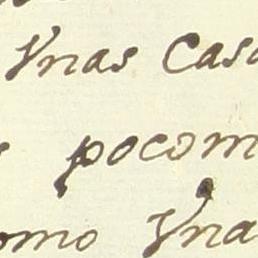 Vnas Casa
s pocom
omo Vna